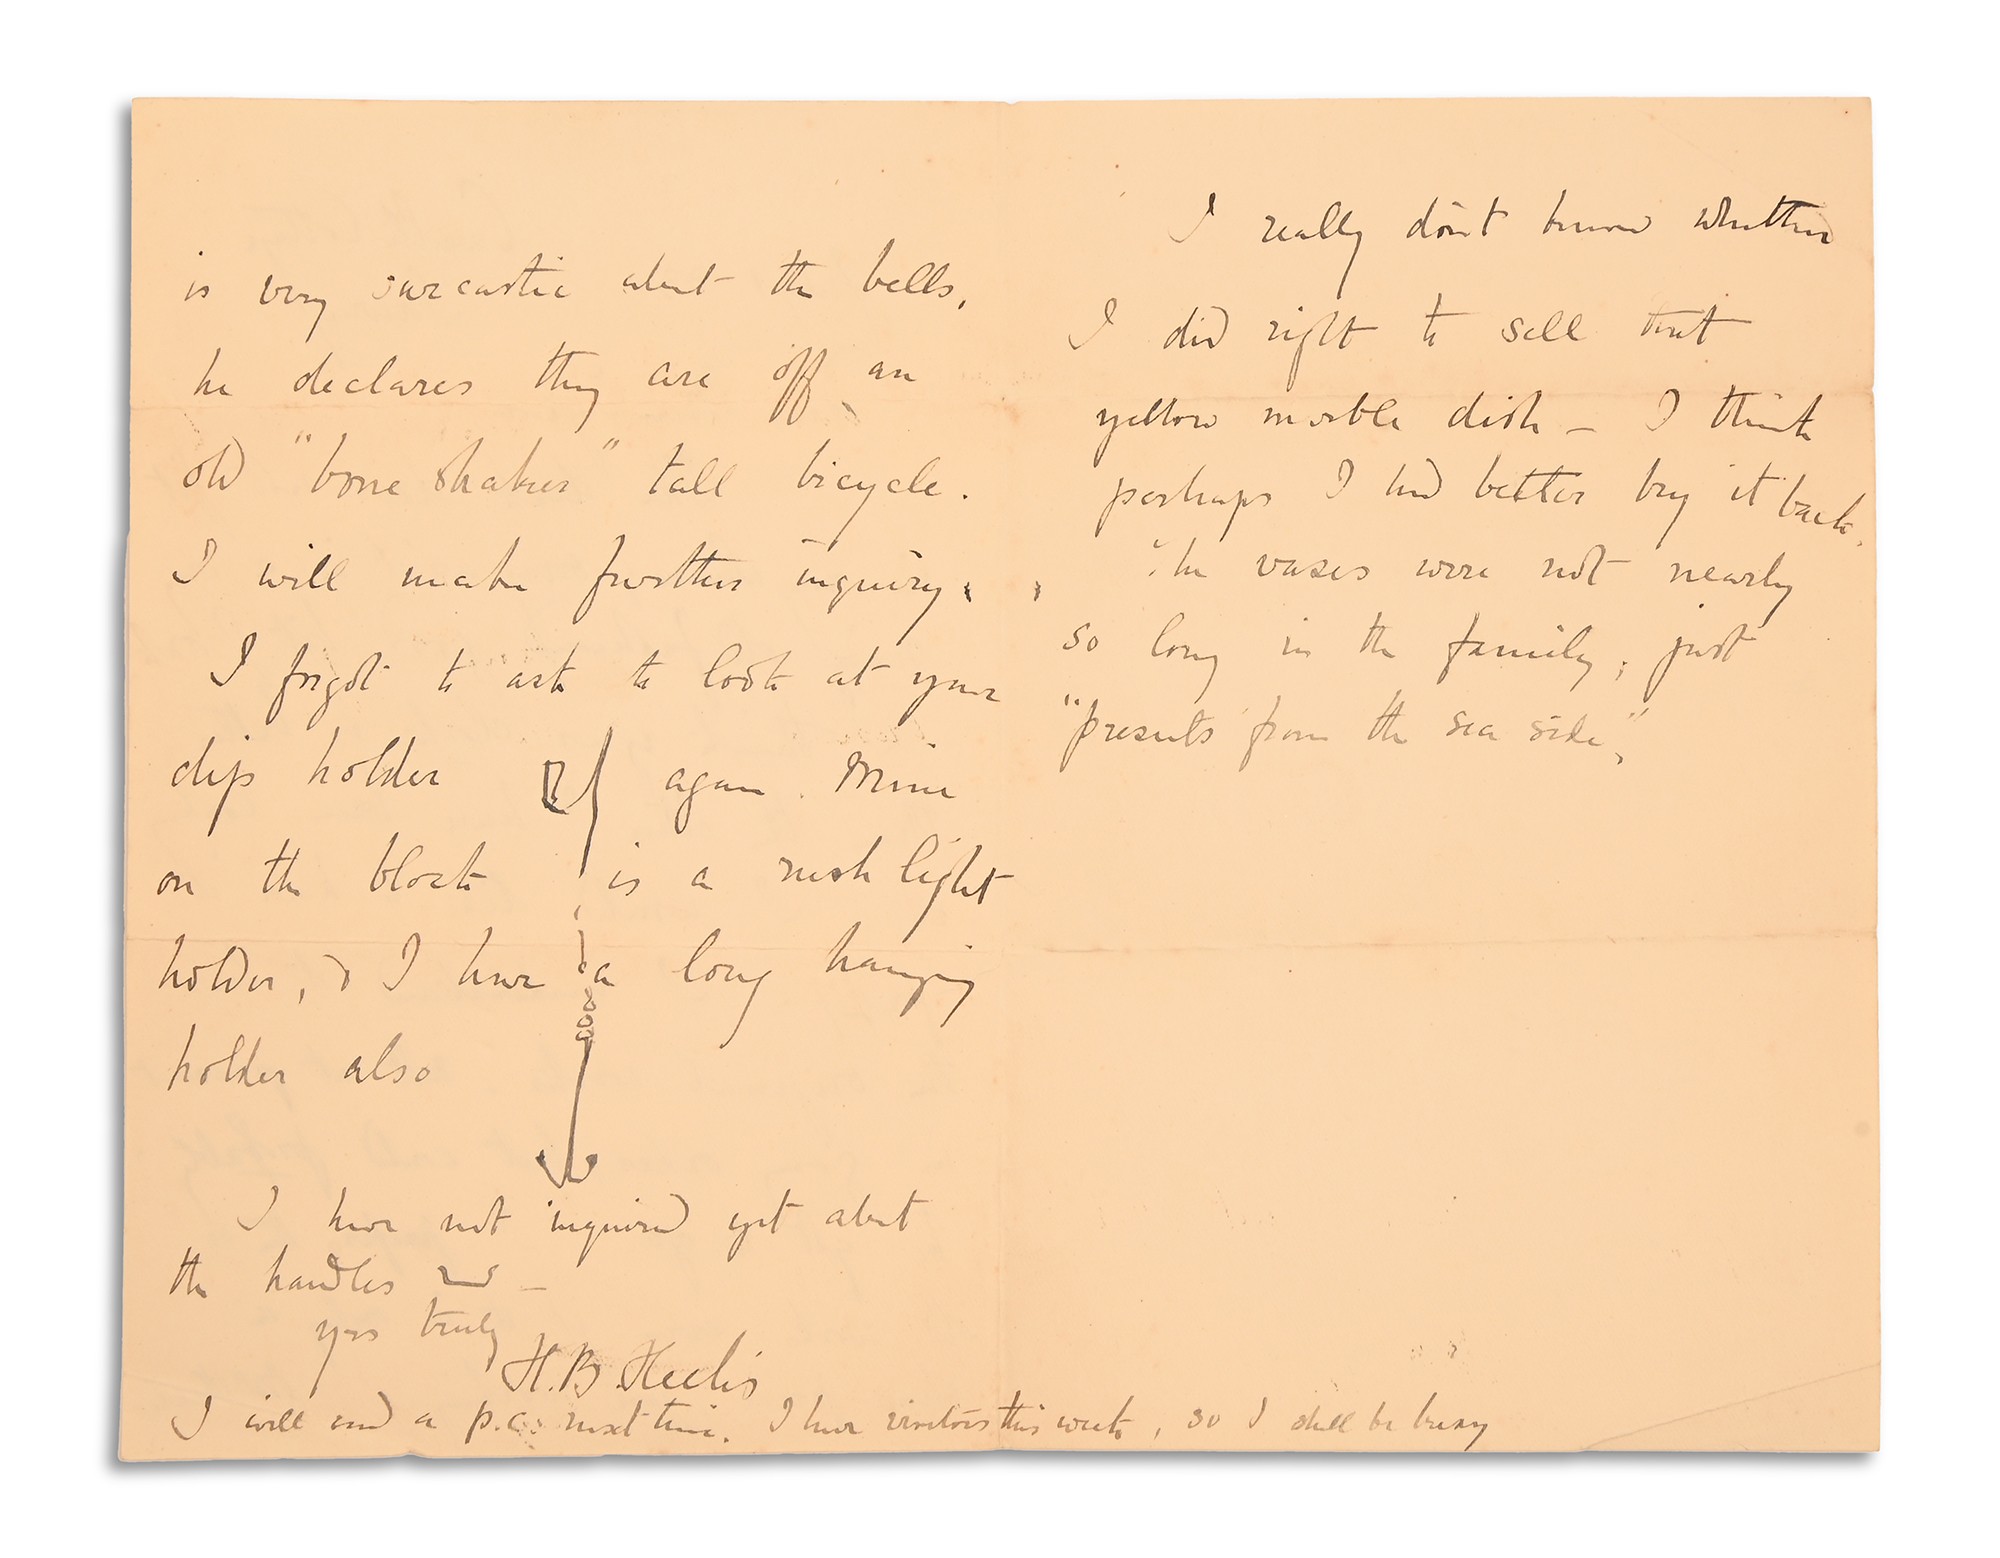 is very sarcastic about the bells,
he declares they are off an
old "bone shaker" tall bicycle.
I will make further inquiry.
I forgot to ask to look at your
dip holder again. Mine
on the block is a rush light
holder, & I have a long hanging
holder also
I have not inquired yet about
the handles —
yrs truly
H.B. Heelis
I will send a p.c. next time. I have visitors this week, so I shall be busy
I really don't know whether
I did right to sell that
yellow marble dish — I think
perhaps I had better buy it back.
The vases were not nearly
so long in the family, just
"presents from the sea side,"